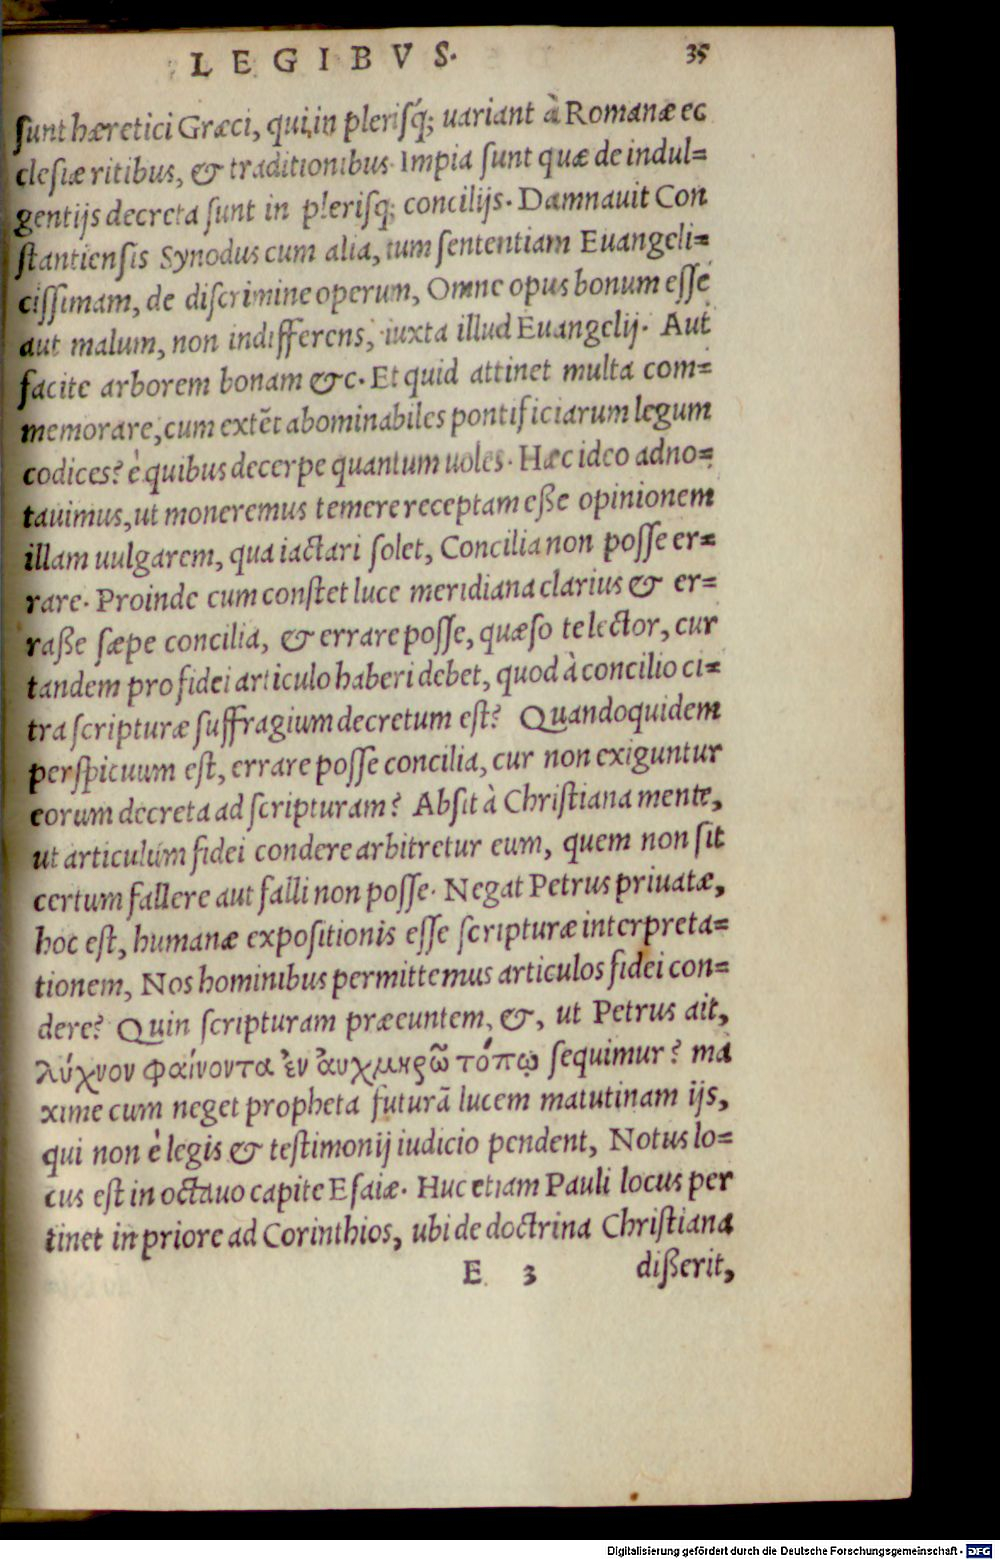 LEGIBVS. 35
sunt hæretici Græci, qui in plerisq́; uariant à Romanæ ec
clesiæ ritibus, & traditionibus. Impia sunt quæ de indul=
gentijs decreta sunt in plerisq; concilijs. Damnauit Con
stantiensis Synodus cum alia, tum sententiam Euangeli=
cissimam, de discrimine operum, Omne opus bonum esse
aut malum, non indifferens, iuxta illud Euangelij. Aut
facite arborem bonam &c. Et quid attinet multa com=
memorare, cum extẽt abominabiles pontificiarum legum
codices? è quibus decerpe quantum uoles. Hæc ideo adno=
tauimus, ut moneremus temere receptam eße opinionem
illam uulgarem, qua iactari solet, Concilia non posse er=
rare. Proinde cum constet luce meridiana clarius & er=
raße sæpe concilia, & errare posse, quæso te lector, cur
tandem pro fidei articulo haberi debet, quod à concilio ci=
tra scripturæ suffragium decretum est? Quandoquidem
perspicuum est, errare posse concilia, cur non exiguntur
eorum decreta ad scripturam? Absit à Christiana mente,
ut articulum fidei condere arbitretur eum, quem non sit
certum fallere aut falli non posse. Negat Petrus priuatæ,
hoc est, humanæ expositionis esse scripturæ interpreta=
tionem, Nos hominibus permittemus articulos fidei con=
dere? Quin scripturam præeuntem, &, ut Petrus ait,
λύχνον φαίνοντα ἐν ἀυχμηρῶ τόπῳ sequimur? ma
xime cum neget propheta futurã lucem matutinam ijs,
qui non è legis & testimonij iudicio pendent, Notus lo=
cus est in octauo capite Esaiæ. Huc etiam Pauli locus per
tinet in priore ad Corinthios, ubi de doctrina Christiana
E 3 dißerit,
Digitalisierung gefördert durch die Deutsche Forschungsgemeinschaft - DFG